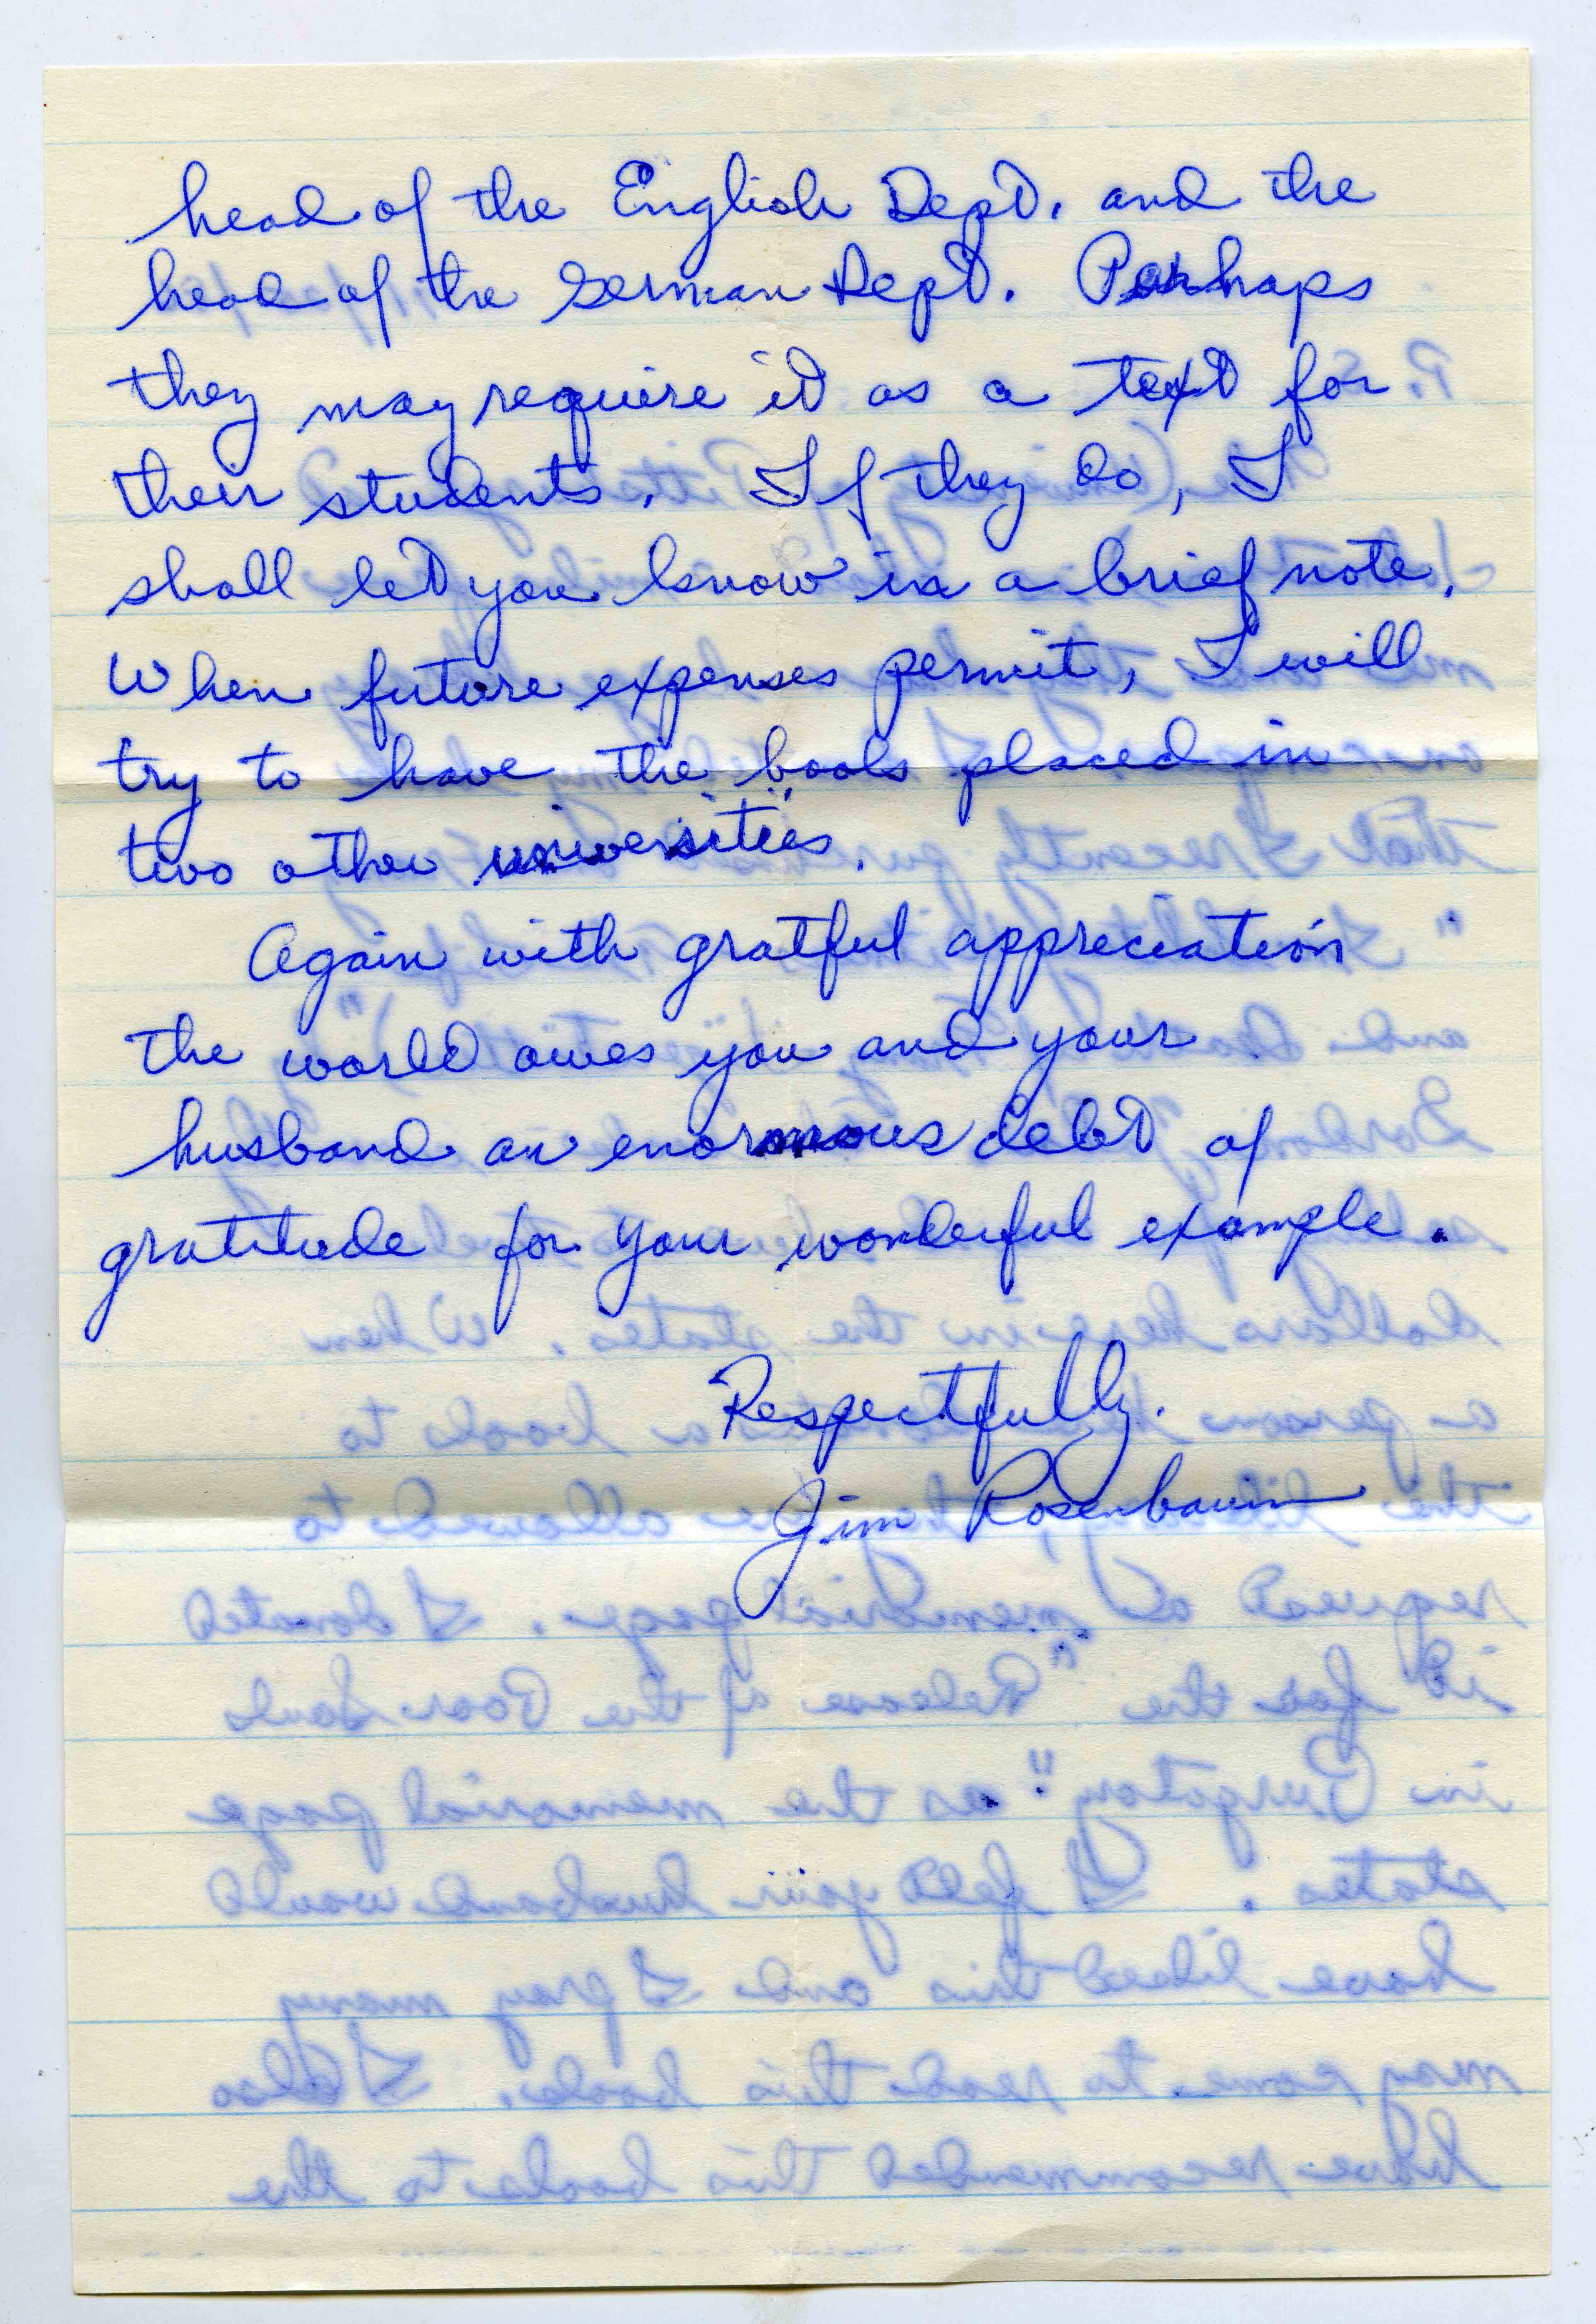 head of the English Dept. and the
head of the German Dept. Perhaps
they may require it as a text for
their students. If they do, I
shall let you know in a brief note.
When future expenses permit, I will
try to have the book placed in
two other universities.
Again with gratful appreciation
the world owes you and your
husband an enormous debt of
gratitude for your wonderful example.
Respectfully.
Jim Rosenbaum